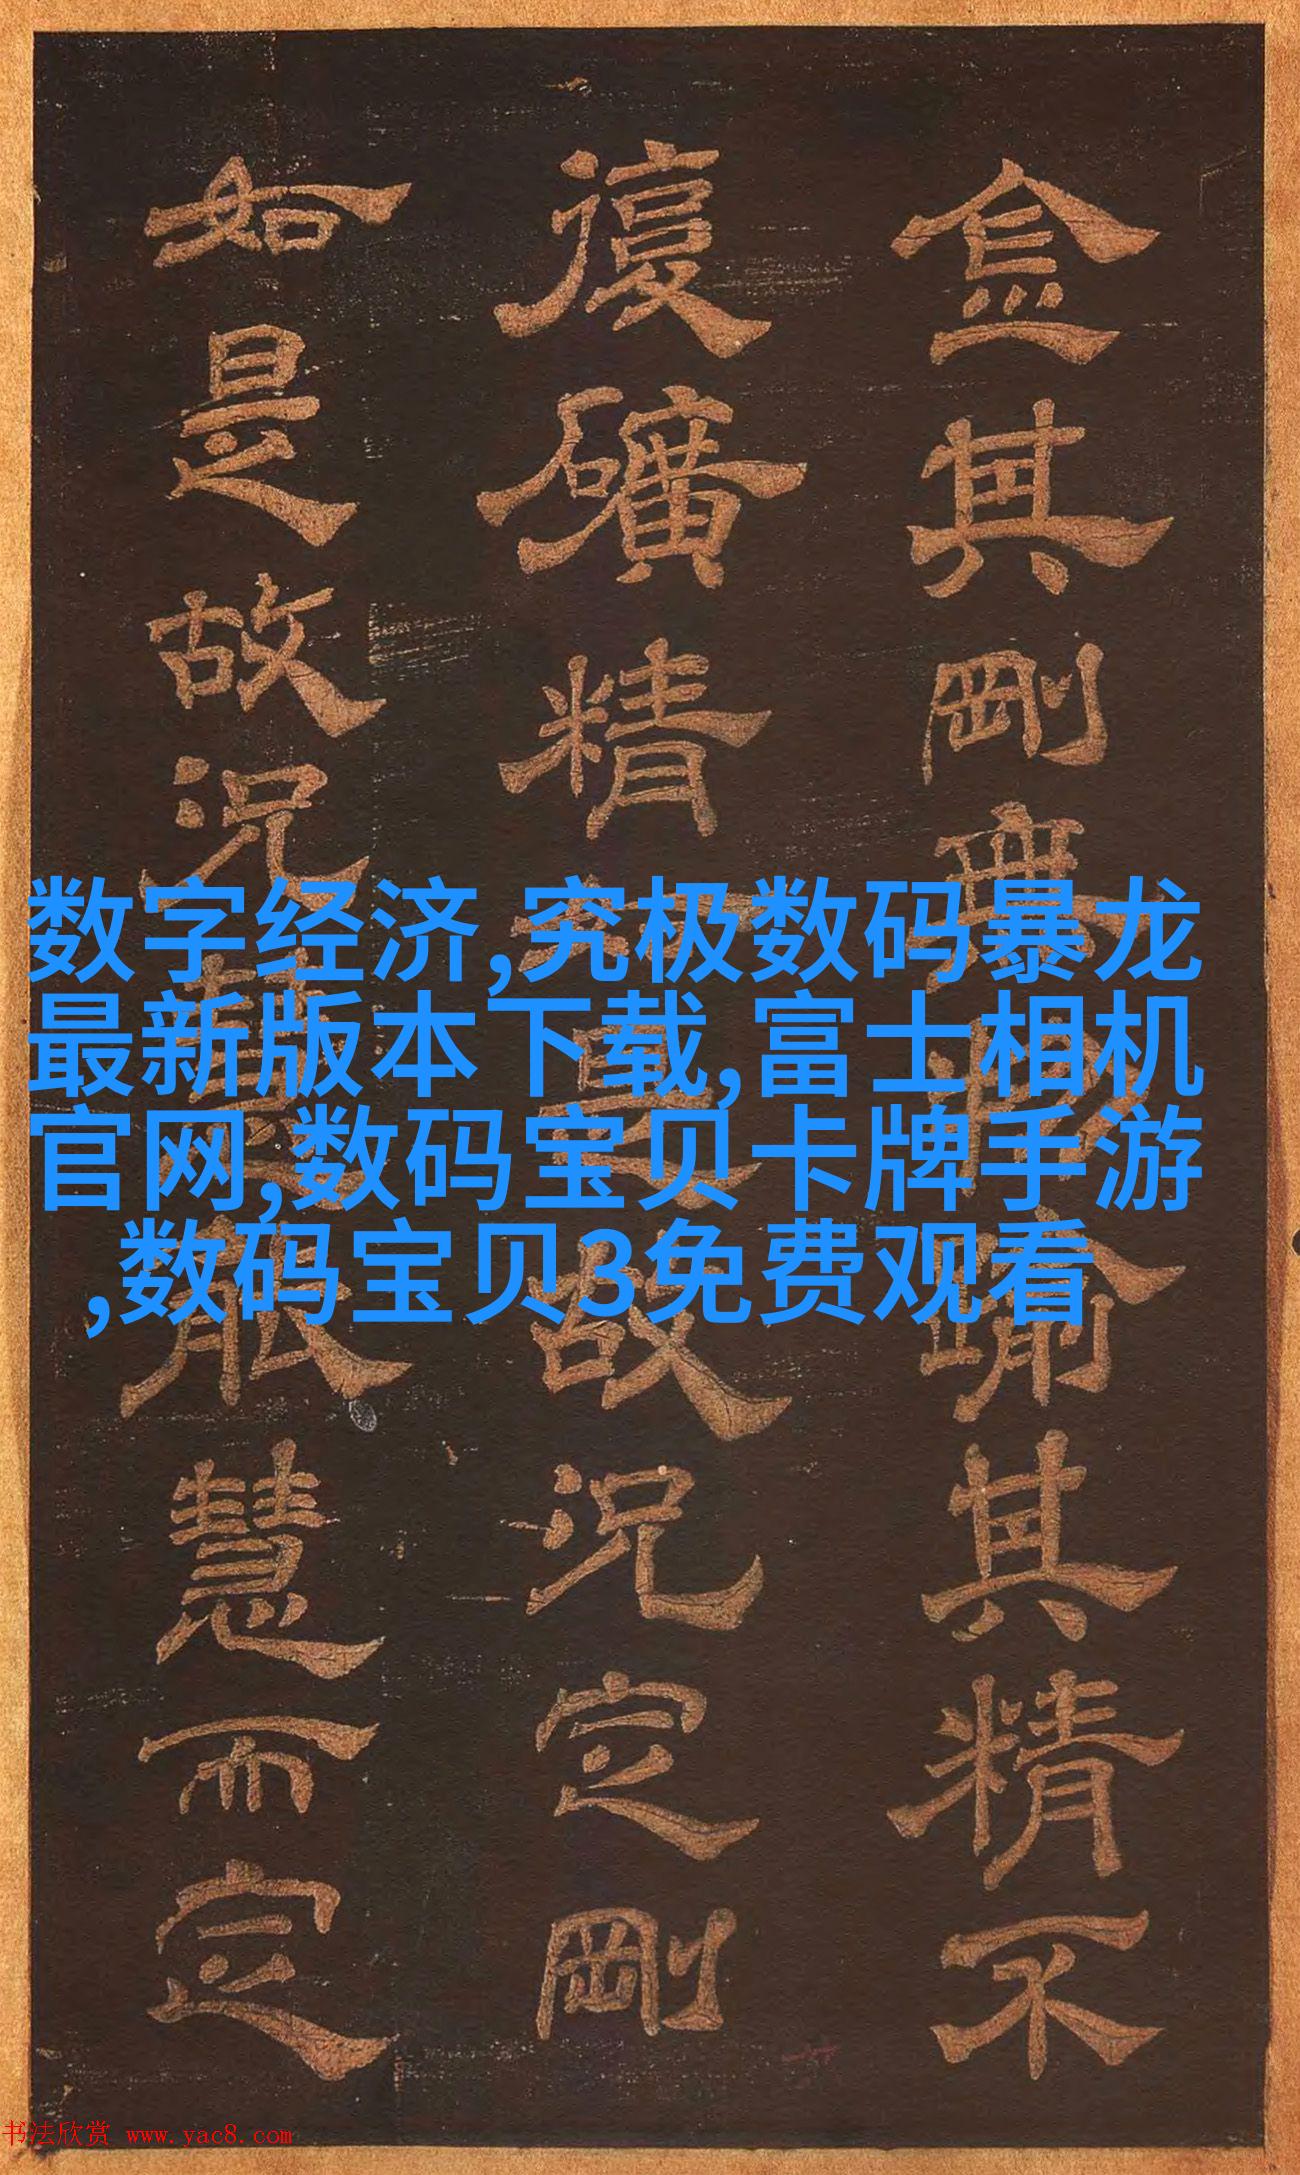 金其剛無踰其精不
復礦精真故況定剛
如是故況慧而定
数字经济,究极数码暴龙
最新版本下载,富士相机
官网,数码宝贝卡牌手游
,数码宝贝3免费观看
书法欣赏 www.yac8.com